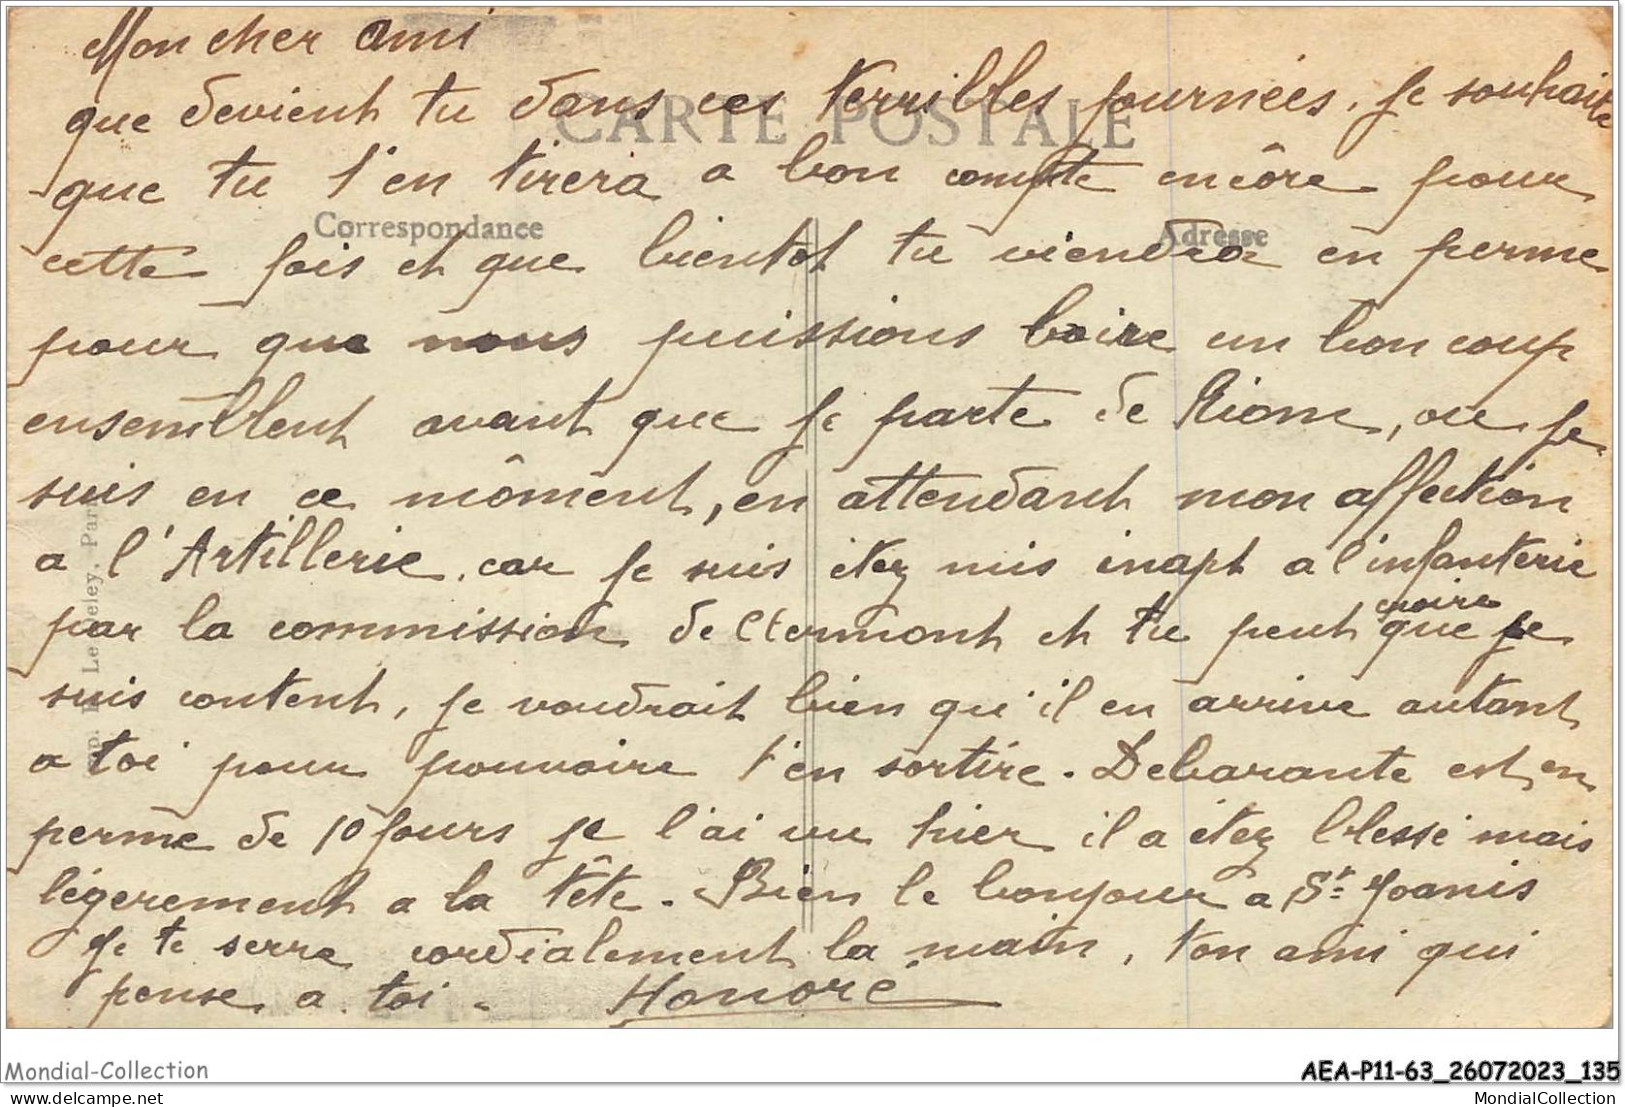 Mon cher ami
que devient tu dans ces terribles journées. je souhaite
CARTE POSTALE
que tu t'en tirera a bon compte encôre pour
Correspondance
Adresse
cette fois et que bientot tu viendra en perme
pour que nous puissions boire un bon coup
ensemblent avant que je parte de Riom, ou je
suis en ce môment, en attendant mon affection
a l'Artillerie. car je suis étez mis inapt a l'infanterie
par la commission de Clermont et tu peut croire que je
suis content, je voudrait bien qu'il en arrive autant
a toi pour pouvoire t'en sortire. Debarante est en
perme de 10 jours je l'ai vu hier il a étez blessé mais
légerement a la tête. Bien le bonjour a St Joanis
Je te serre cordialement la main, ton ami qui
pense a toi - Honoré
Mondial-Collection
AEA-P11-63_26072023_135
delcampe.net
MondialCollection